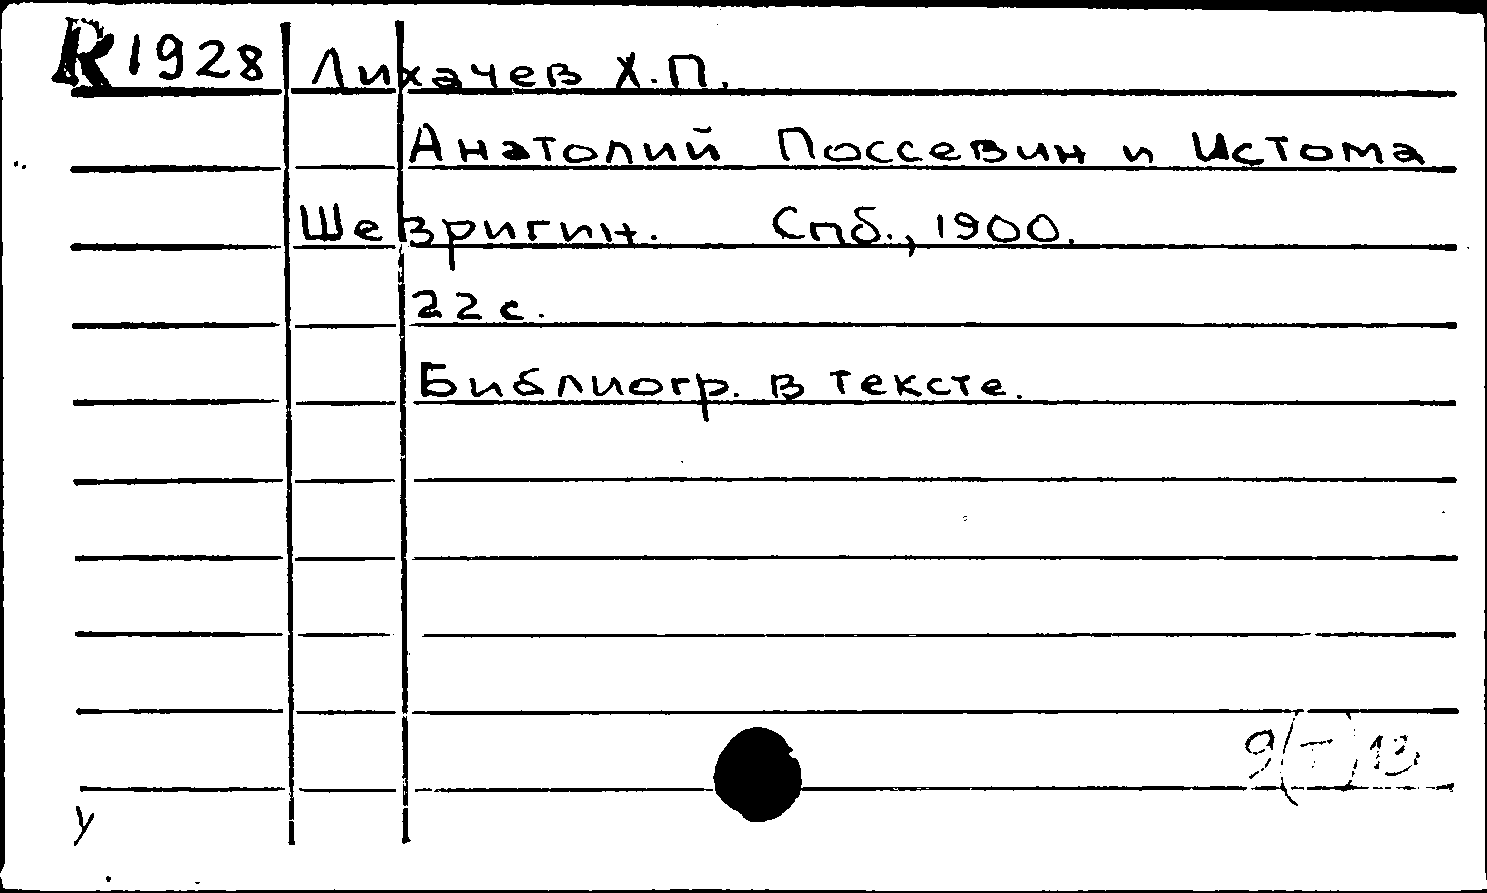 R1928 Лихачев Х.П.
Анатолий Поссевин и Истома
Шевригин. Спб., 1900.
22 с.
Библиогр. в тексте.
9(Т)13
у